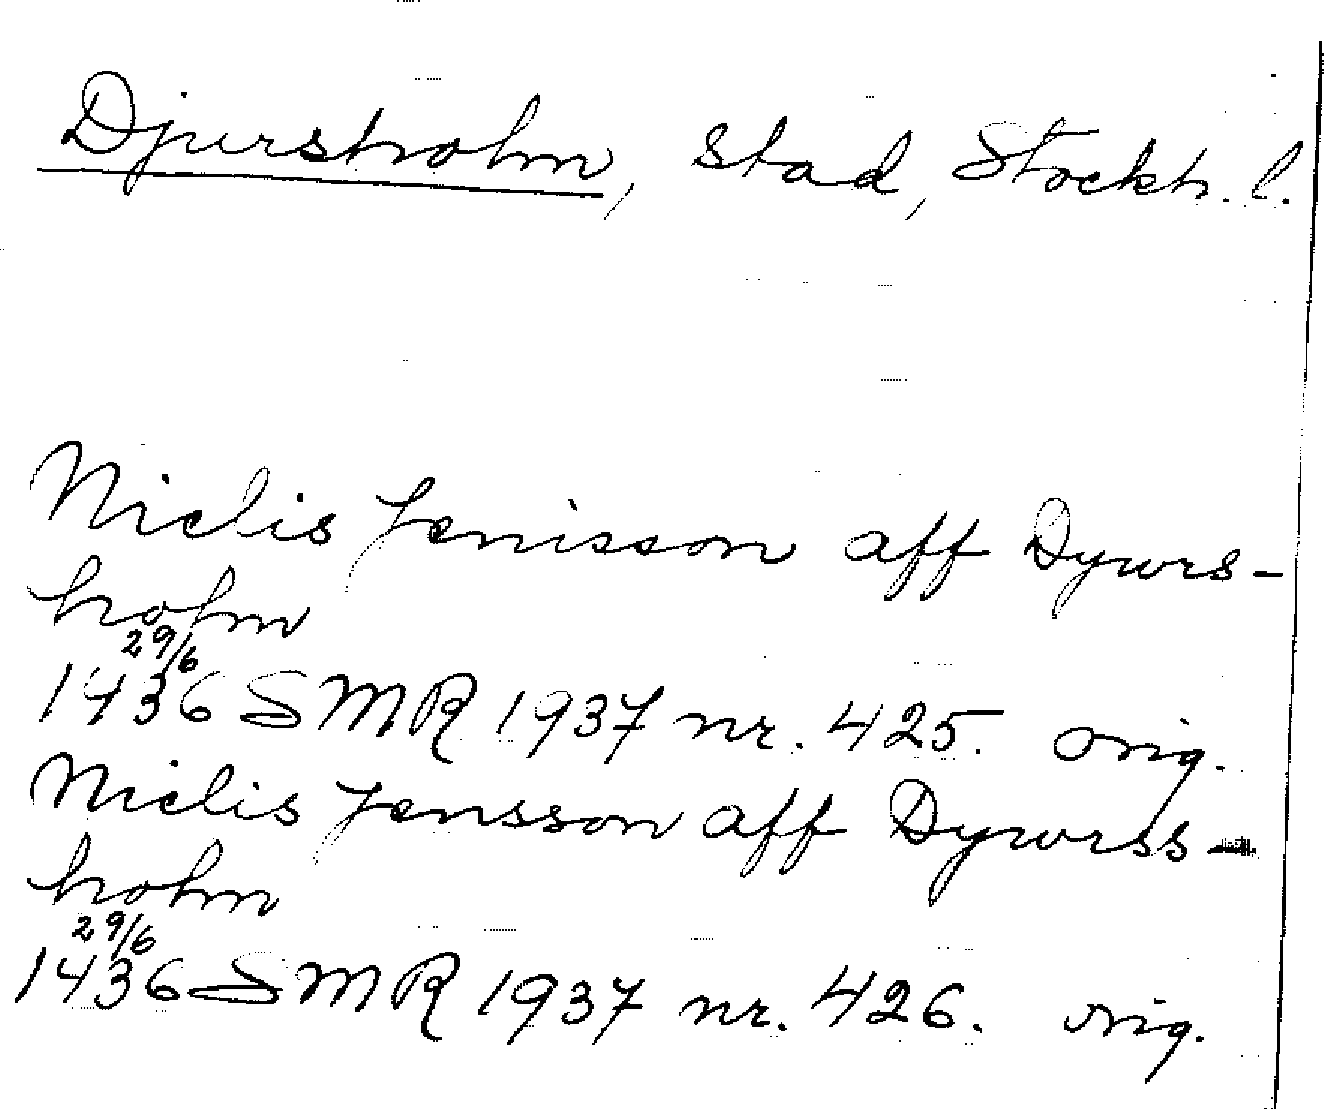 Djursholm, stad, Stockh. l.
Niclis Jenisson aff Dywrs-
holm
29/6
1436 SMR 1937 nr. 425. orig.
Niclis Jensson aff Dywrss-
holm
29/6
1436 SMR 1937 nr. 426. orig.